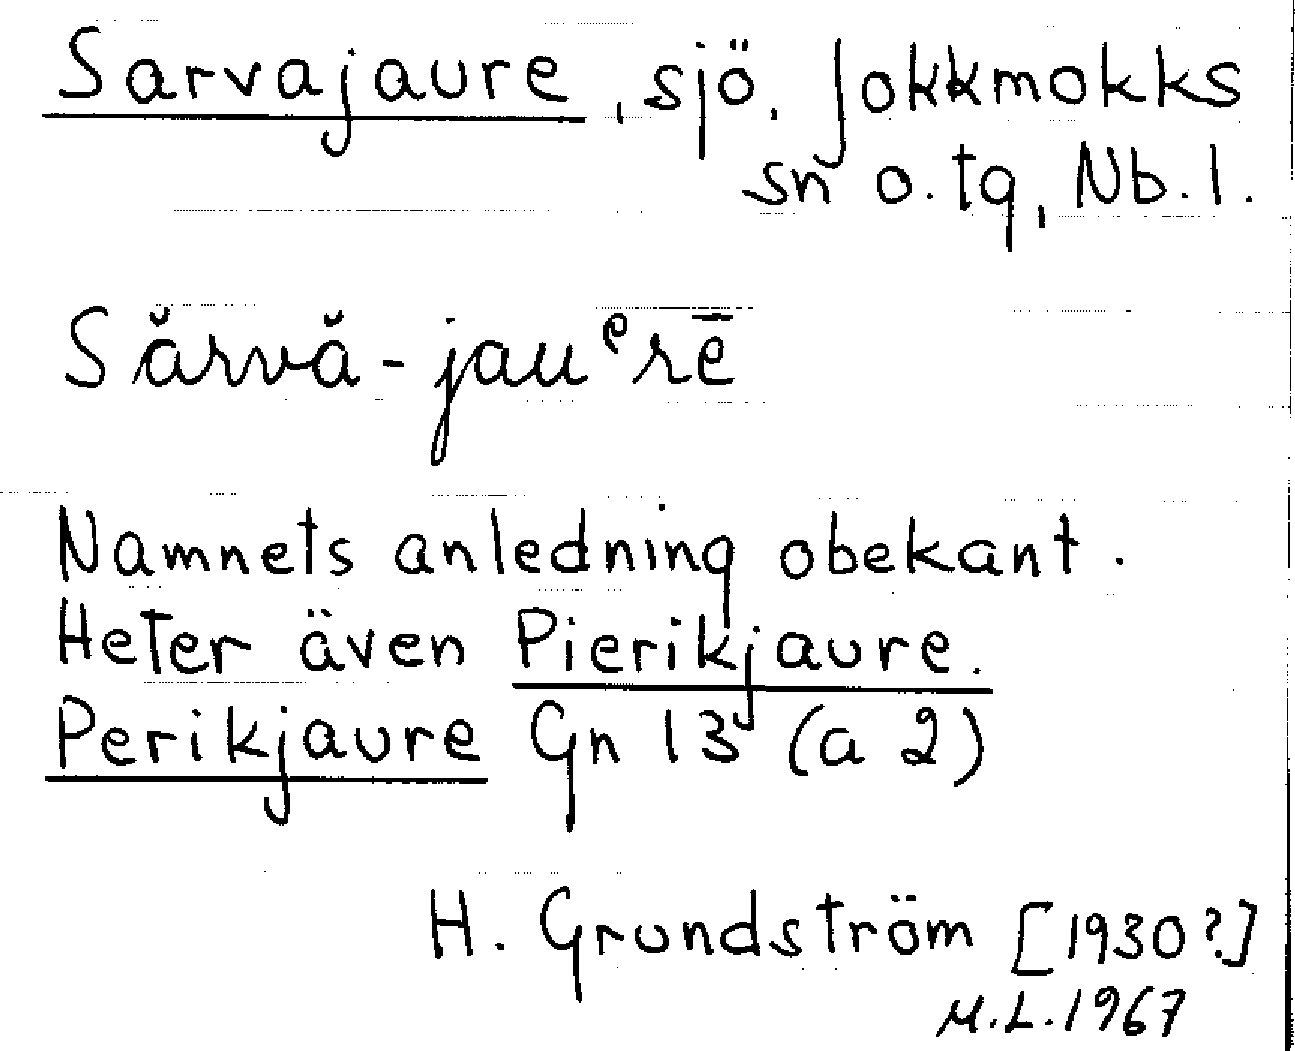 Sarvajaure, sjö, Jokkmokks
sn o. tg, Nb. l.
Sărvă-jauᵉrē
Namnets anledning obekant.
Heter även Pierikjaure.
Perikjaure Gn 13 (a 2)
H. Grundström [1930?]
M.L. 1967